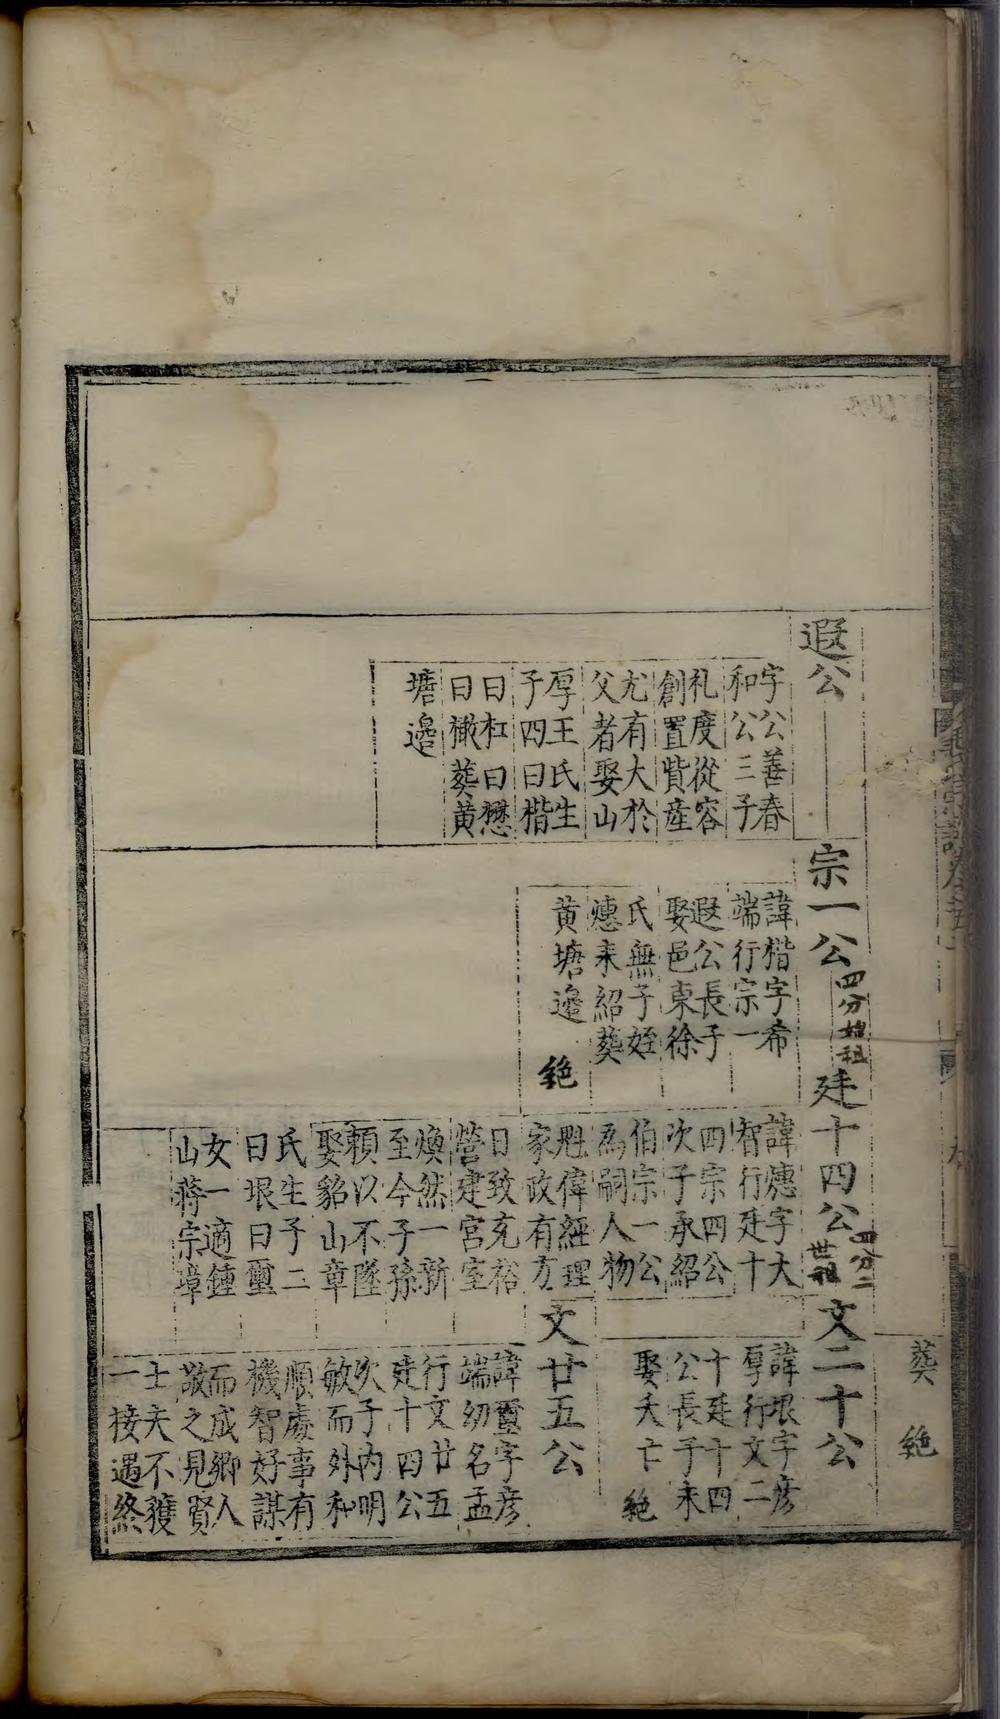 遐公
字公善春
和公三子
礼度從容
創置貲產
尤有大於
父者娶山
厚王氏生
子四曰楷
曰杠曰懋
曰橄葬黄
塘邊
宗一公
四分始祖
諱楷字希
端行宗一
遐公長子
娶邑東徐
氏無子姪
憓来紹葬
黄塘邊
絶
廷十四公
四分二
世祖
諱憓字大
智行廷十
四宗四公
次子承紹
伯宗一公
為嗣人物
魁偉經理
家政有方
日致充裕
營建宮室
煥然一新
至今子孫
頼以不墜
娶貂山章
氏生子二
曰垠曰壐
女一適鍾
山蔣宗璋
葬
絶
文二十公
諱垠字彦
厚行文二
十廷十四
公長子未
娶夭亡
絶
文廿五公
諱壐字彦
端幼名孟
行文廿五
廷十四公
次子内明
敏而外和
順處事有
機智好謀
而成鄉人
敬之見賢
士夫不獲
一接遇終